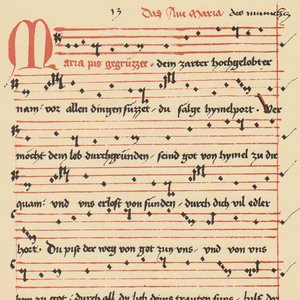 13 Das Aue Maria des munches
Maria pis gegrüzzet · dein zarter hochgelobter
nam · vor allen dingen süzzet · du salge hymelport · Wer
möcht dein lob durchgründen · seind got von hymel zu dir
quam · vnd vns erlost son sünden · durch dich vil edler
hort · Du pist der weg von got zun vns · vnd von vns